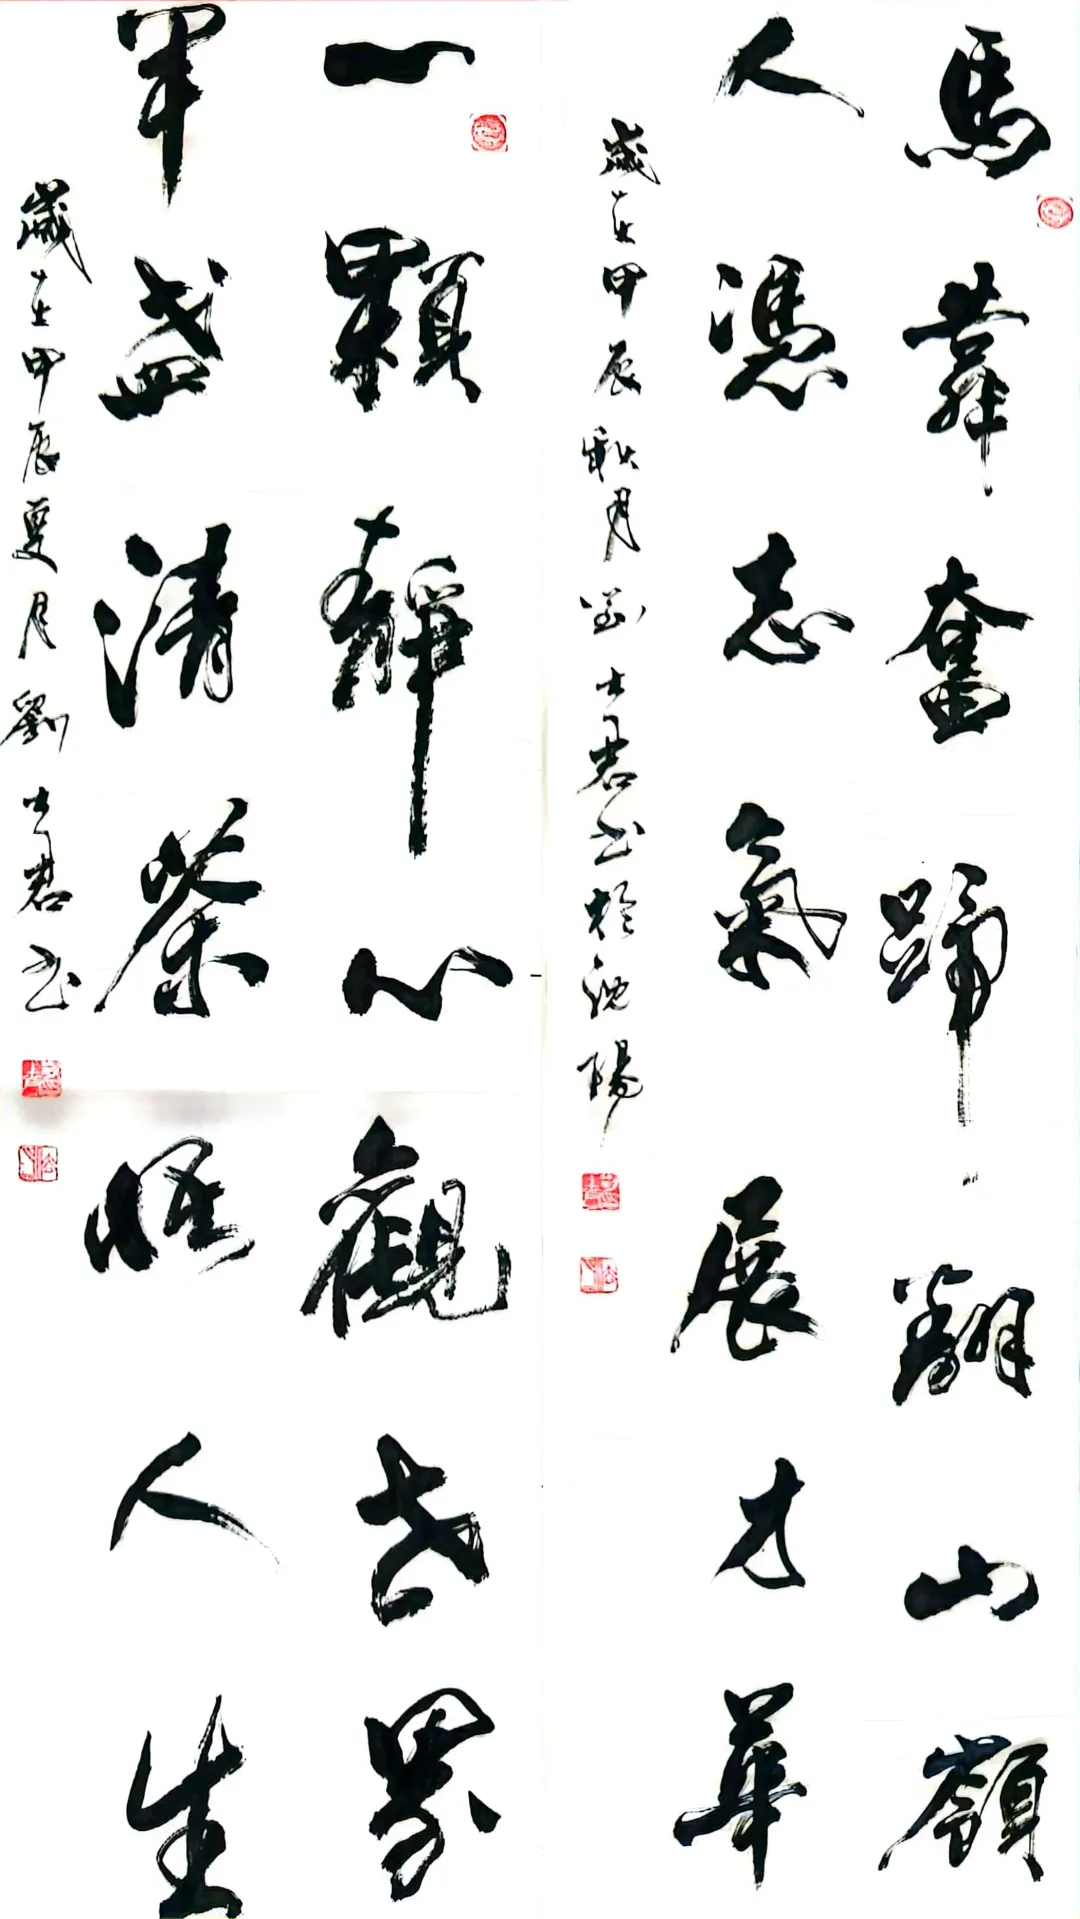 馬靠奮蹄翻山嶺
人憑志氣展才華
歲在甲辰秋月劉士君书於沈陽
一顆靜心觀世界
半盞清茶悟人生
歲在甲辰夏月劉士君书